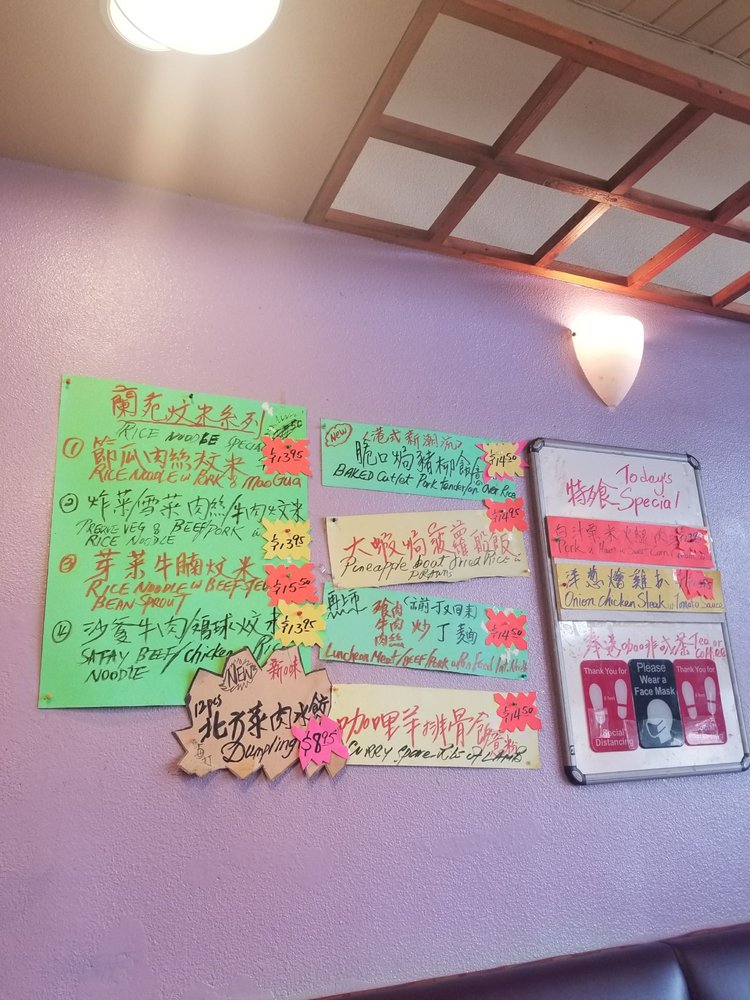 蘭苑炆米系列
RICE NOODLE SPECIAL
① 節瓜肉絲炆米 $13.95
RICE NOODLE W PORK & MaoGua
② 炸菜雪菜肉絲/牛肉炆米
VEG & BEEF PORK W
RICE NOODLE $13.95
③ 芽菜牛腩炆米
RICE NOODLE W BEEF STEW $15.50
BEAN SPROUT
④ 沙爹牛肉/鷄球炆米 $13.95
SATAY BEEF/Chicken Rice
NOODLE
NEW 新口味
12pcs 北方菜肉水餃
Dumpling $8.95
New 港式新潮流
脆口焗豬柳飯 $14.50
BAKED Cutlet Pork Tenderloin Over Rice
$14.95
大蝦焗菠蘿船飯
Pineapple boat fried Rice W
PRAWNS
雞肉
牛肉 炒 丁麵 $14.50
肉絲
Luncheon Meat/BEEF/Pork W Pan Fried
咖喱羊排骨飯 $14.50
Curry Spare Ribs of LAMB
Today's
特飧 Special
Pork Sweet Corn
洋葱燴雞扒
Onion Chicken Steak W Tomato Sauce
奉送咖啡或茶 Tea or
Coffee
Thank You for
6 feet
Social
Distancing
Please
Wear a
Face Mask
Thank You for